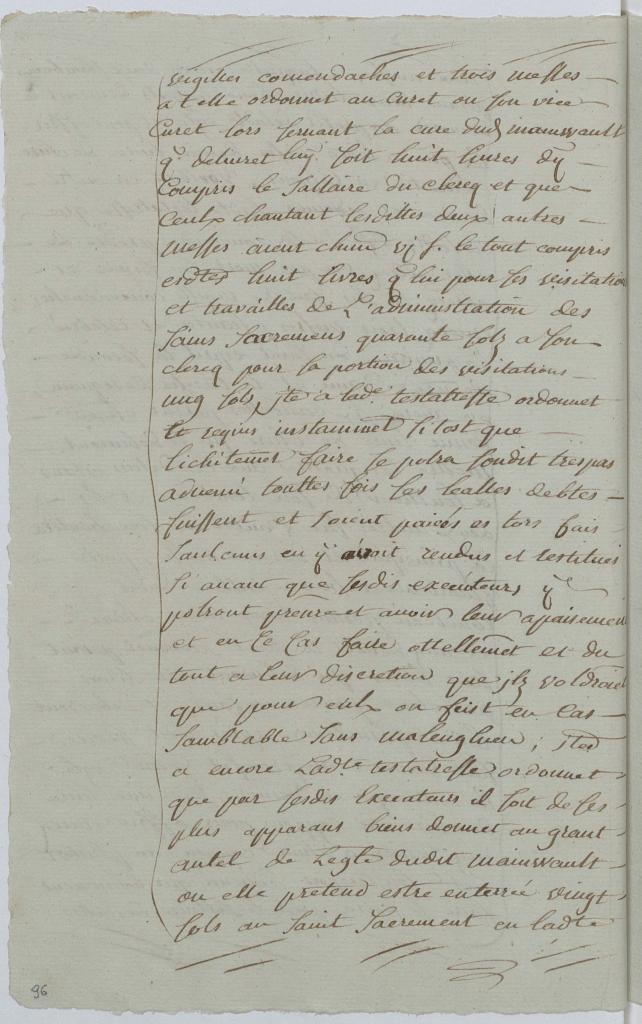 vigilles comendaches et trois messes
at elle ordonnet au Curet ou son vice
Curet lors servant la cure dud mainvault
q. delivret luy soit huit livres dy
Compris le Sallaire du clercq et que
Ceulx chantant lesdittes deux autres
Messes aient chun vj s. le tout compris
esdtes huit livres q lui pour ses visitation
et travailles de L'administration des
Sains Sacremens quarante solz a son
clercq pour sa portion des visitations
ung sols, jte a lad.e testatresse ordonnet
et requis instammet si tost que
licitemet faire se polra sondit trespas
advenu touttes fois ses lealles debtes
fuissent et soient paiiés es tors fais
Sauleuns en y avoit rendus et restitués
Si avant que sesdis executeurs y
polront prenre et avoir leur apaisement
et en Ce Cas faire ottellemet et du
tout a leur discretion que jlz voldroie
que pour eulx on feist en Cas
Samblable sans malenghien; jted
a encore Lad.te testatresse ordonnet
que par sesdis Executeurs il soit de ses
plus apparans biens donnet au grant
autel de Legle dudit mainvault
ou elle pretend estre enterrée vingt
sols au Saint Sacrement en ladte
96